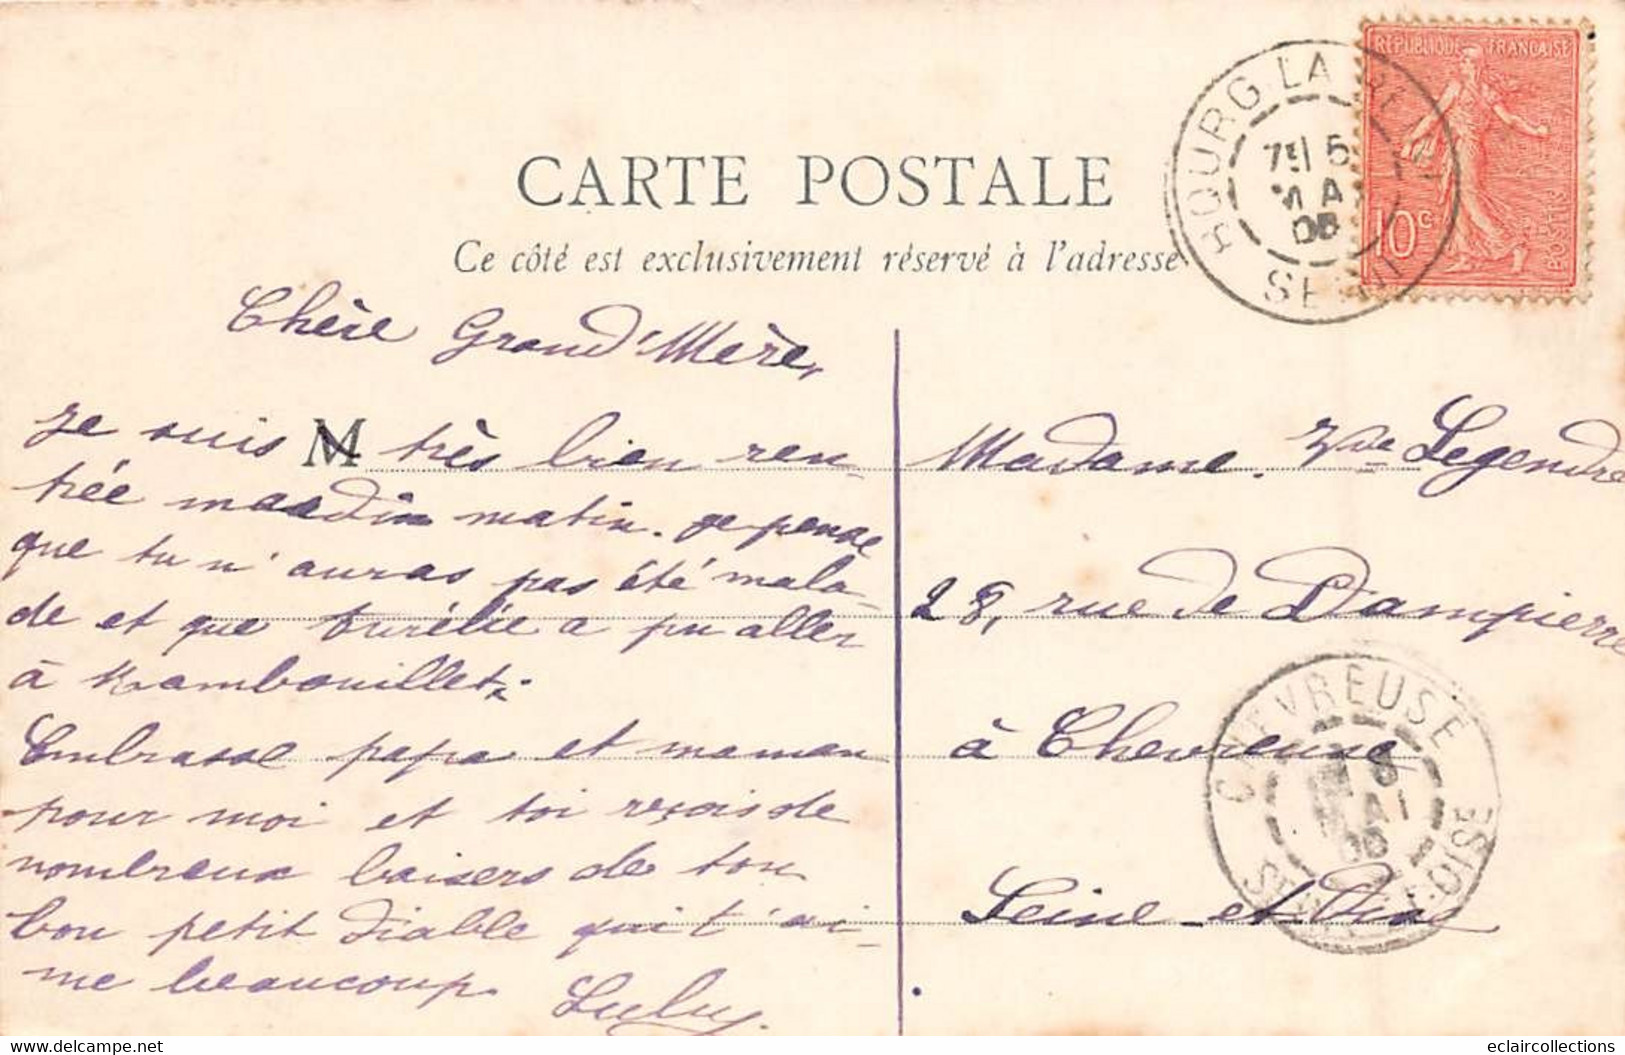 CARTE POSTALE
Ce côté est exclusivement réservé à l'adresse
RÉPUBLIQUE FRANÇAISE
10c
POSTES
BOURG-LA-REINE
5
MAI
06
SEINE
Chère Grand'Mère,
Je suis M très bien ren-
trée mardin matin. Je pense
que tu n'auras pas été mala-
de et que Aurélie a pu aller
à Rambouillet.
Embrasse papa et maman
pour moi et toi reçois de
nombreux baisers de ton
bon petit diable qui t'ai-
me beaucoup. Lulu.
Madame Vve Legendre
28, rue de Dampierre
à Chevreuse
Seine-et-Oise
CHEVREUSE
MAI
06
SEINE-ET-OISE
www.delcampe.net
eclaircollections